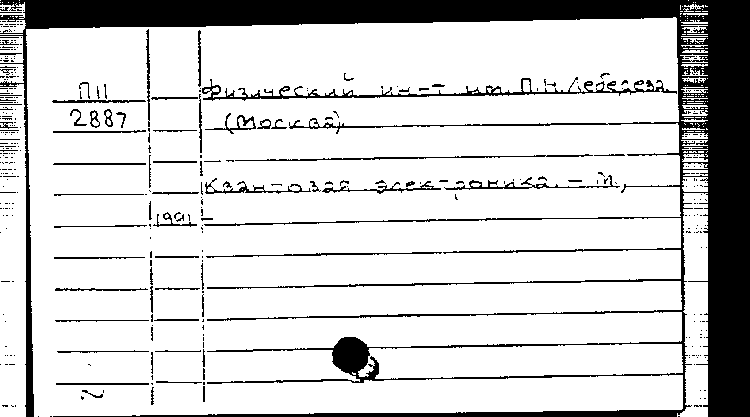 П11 Физический ин-т им. П.Н. Лебедева
2887 (Москва).
Квантовая электроника. – М.,
1991 –